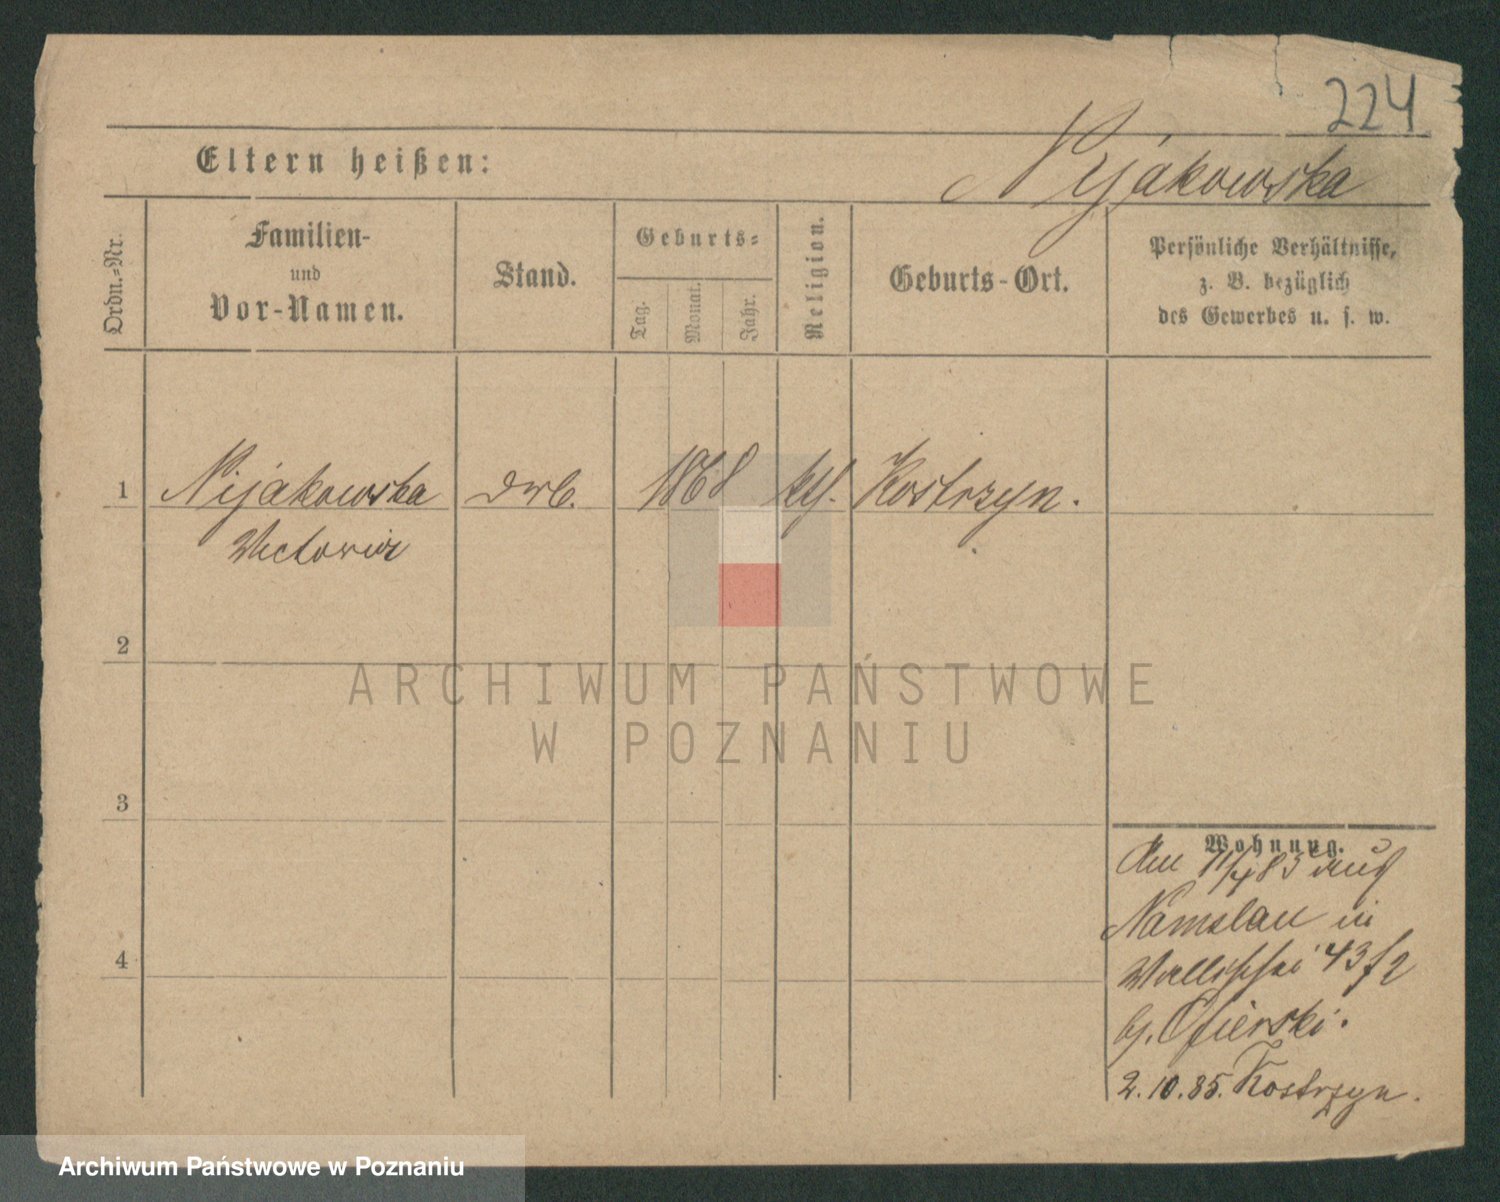 224
Eltern heißen:
Nijakowska
Ordn.-Nr.
Familien-
und
Vor-Namen.
Stand.
Geburts-
Tag.
Monat.
Jahr.
Religion.
Geburts-Ort.
Persönliche Verhältnisse,
z. B. bezüglich
des Gewerbes u. s. w.
1
Nijakowska
1868
Kostrzyn.
Victoria
2
ARCHIWUM PAŃSTWOWE
W POZNANIU
3
Wohnung.
Am 11/4 85 aus
Namslau in
Wallischei 43
bei Ofierski.
4
2.10.85. Kostrzyn.
Archiwum Państwowe w Poznaniu